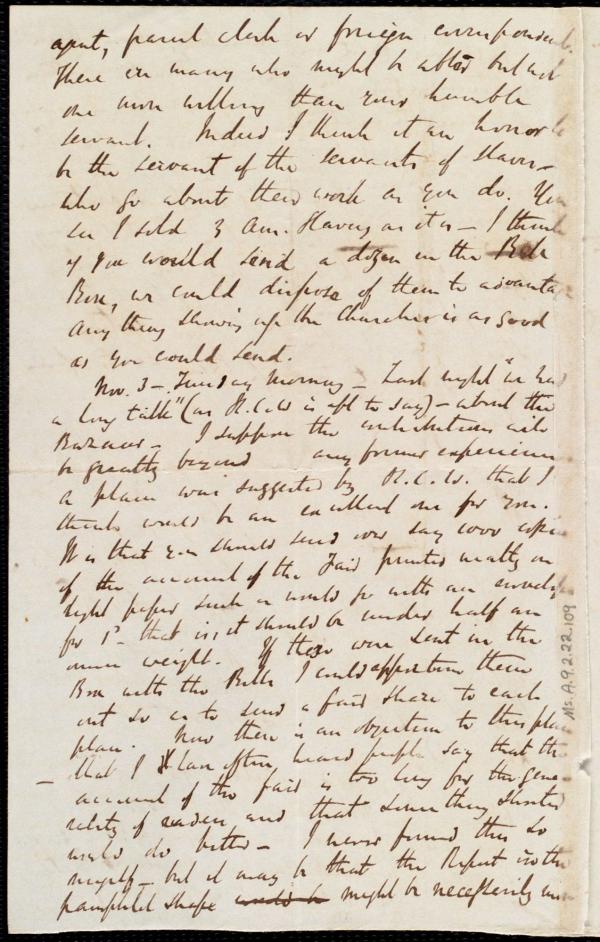 agent, parcel clerk or foreign correspondent.
There are many who might be abler but not
one more willing than your humble
servant. Indeed I think it an honor to
be the servant of the servants of slaves—
who go about their work as you do. You
see I sold 3 Am. Slavery as it is — I think
if you would send a dozen in the Bella
Box, we could dispose of them to advantage
Any thing showing up the Churches is as good
as you could send.
Nov. 3 — Tuesday Morning — Last night "we had
a long talk" (as H.C.W. is apt to say) — about the
Bazaar — I suppose the contributions will
be greatly beyond any former experience
a plan was suggested by H.C.W. that I
think would be an excellent one for you.
It is that you should send over say 1000 copies
of the account of the Fair printed neatly on
light paper such as would go with an envelope
for 1d — that is, it should be under half an
ounce weight. If these were sent in the
Box with the Bells I could apportion them
out so as to send a fair share to each
place. Now there is an objection to this plan
— that I have often heard people say that the
account of the fair is too long for the gene-
rality of readers and that something shorter
would do better — I never found this so
myself — but it may be that the Report in the
pamphlet shape might be necessarily
Ms. A. 9. 2. 22. 109